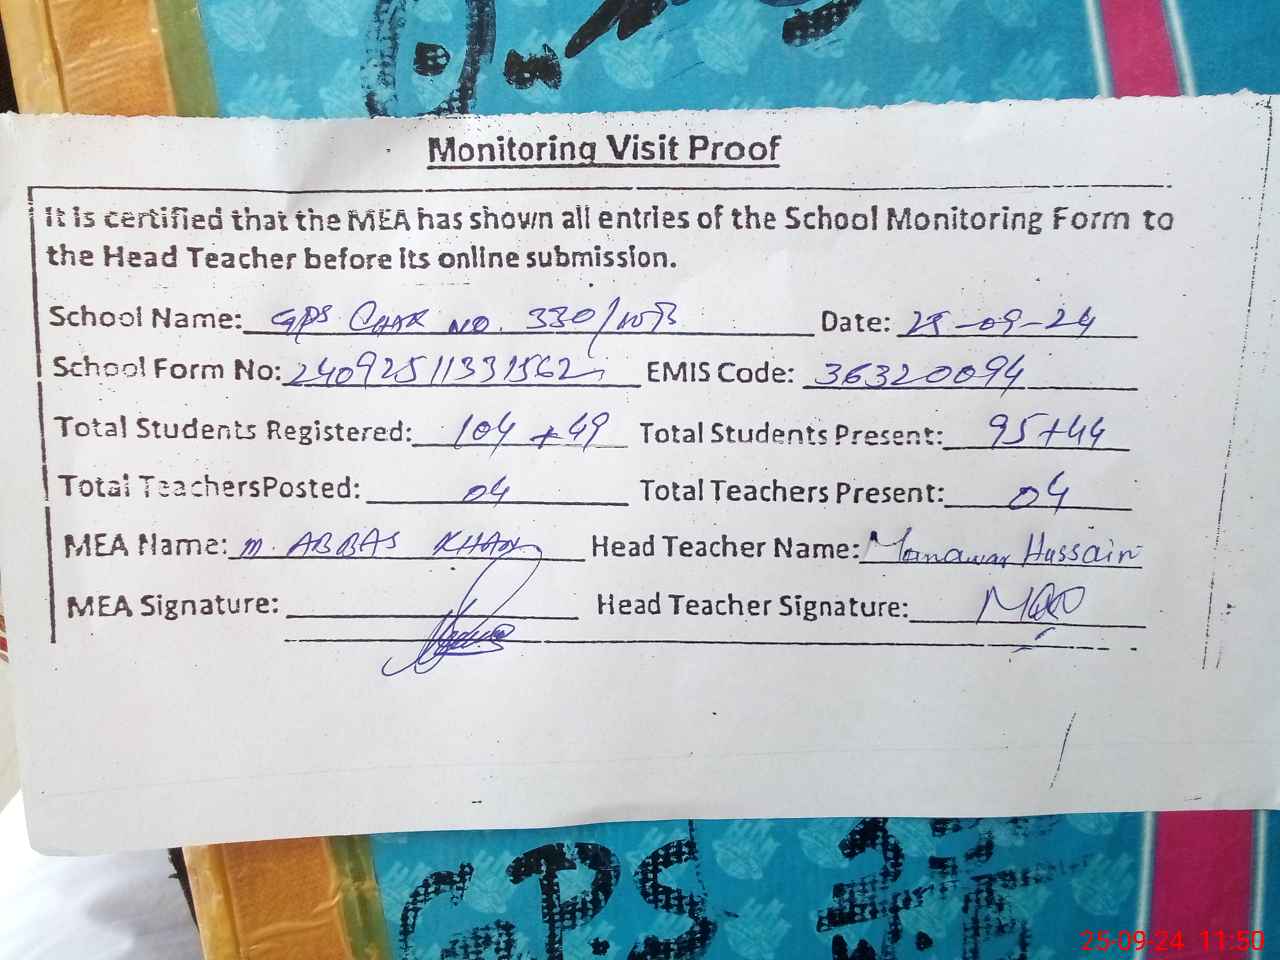 Monitoring Visit Proof
It is certified that the MEA has shown all entries of the School Monitoring Form to
the Head Teacher before its online submission.
School Name: GPS CHAK NO. 330/10B Date: 25-09-24
School Form No: EMIS Code: 36320094
Total Students Registered: 104 + 49 Total Students Present: 95+44
Total TeachersPosted: 04 Total Teachers Present: 04
MEA Name: M. ABBAS KHAN Head Teacher Name: Manawar Hussain
MEA Signature: Head Teacher Signature:
GPS
25-09-24 11:50